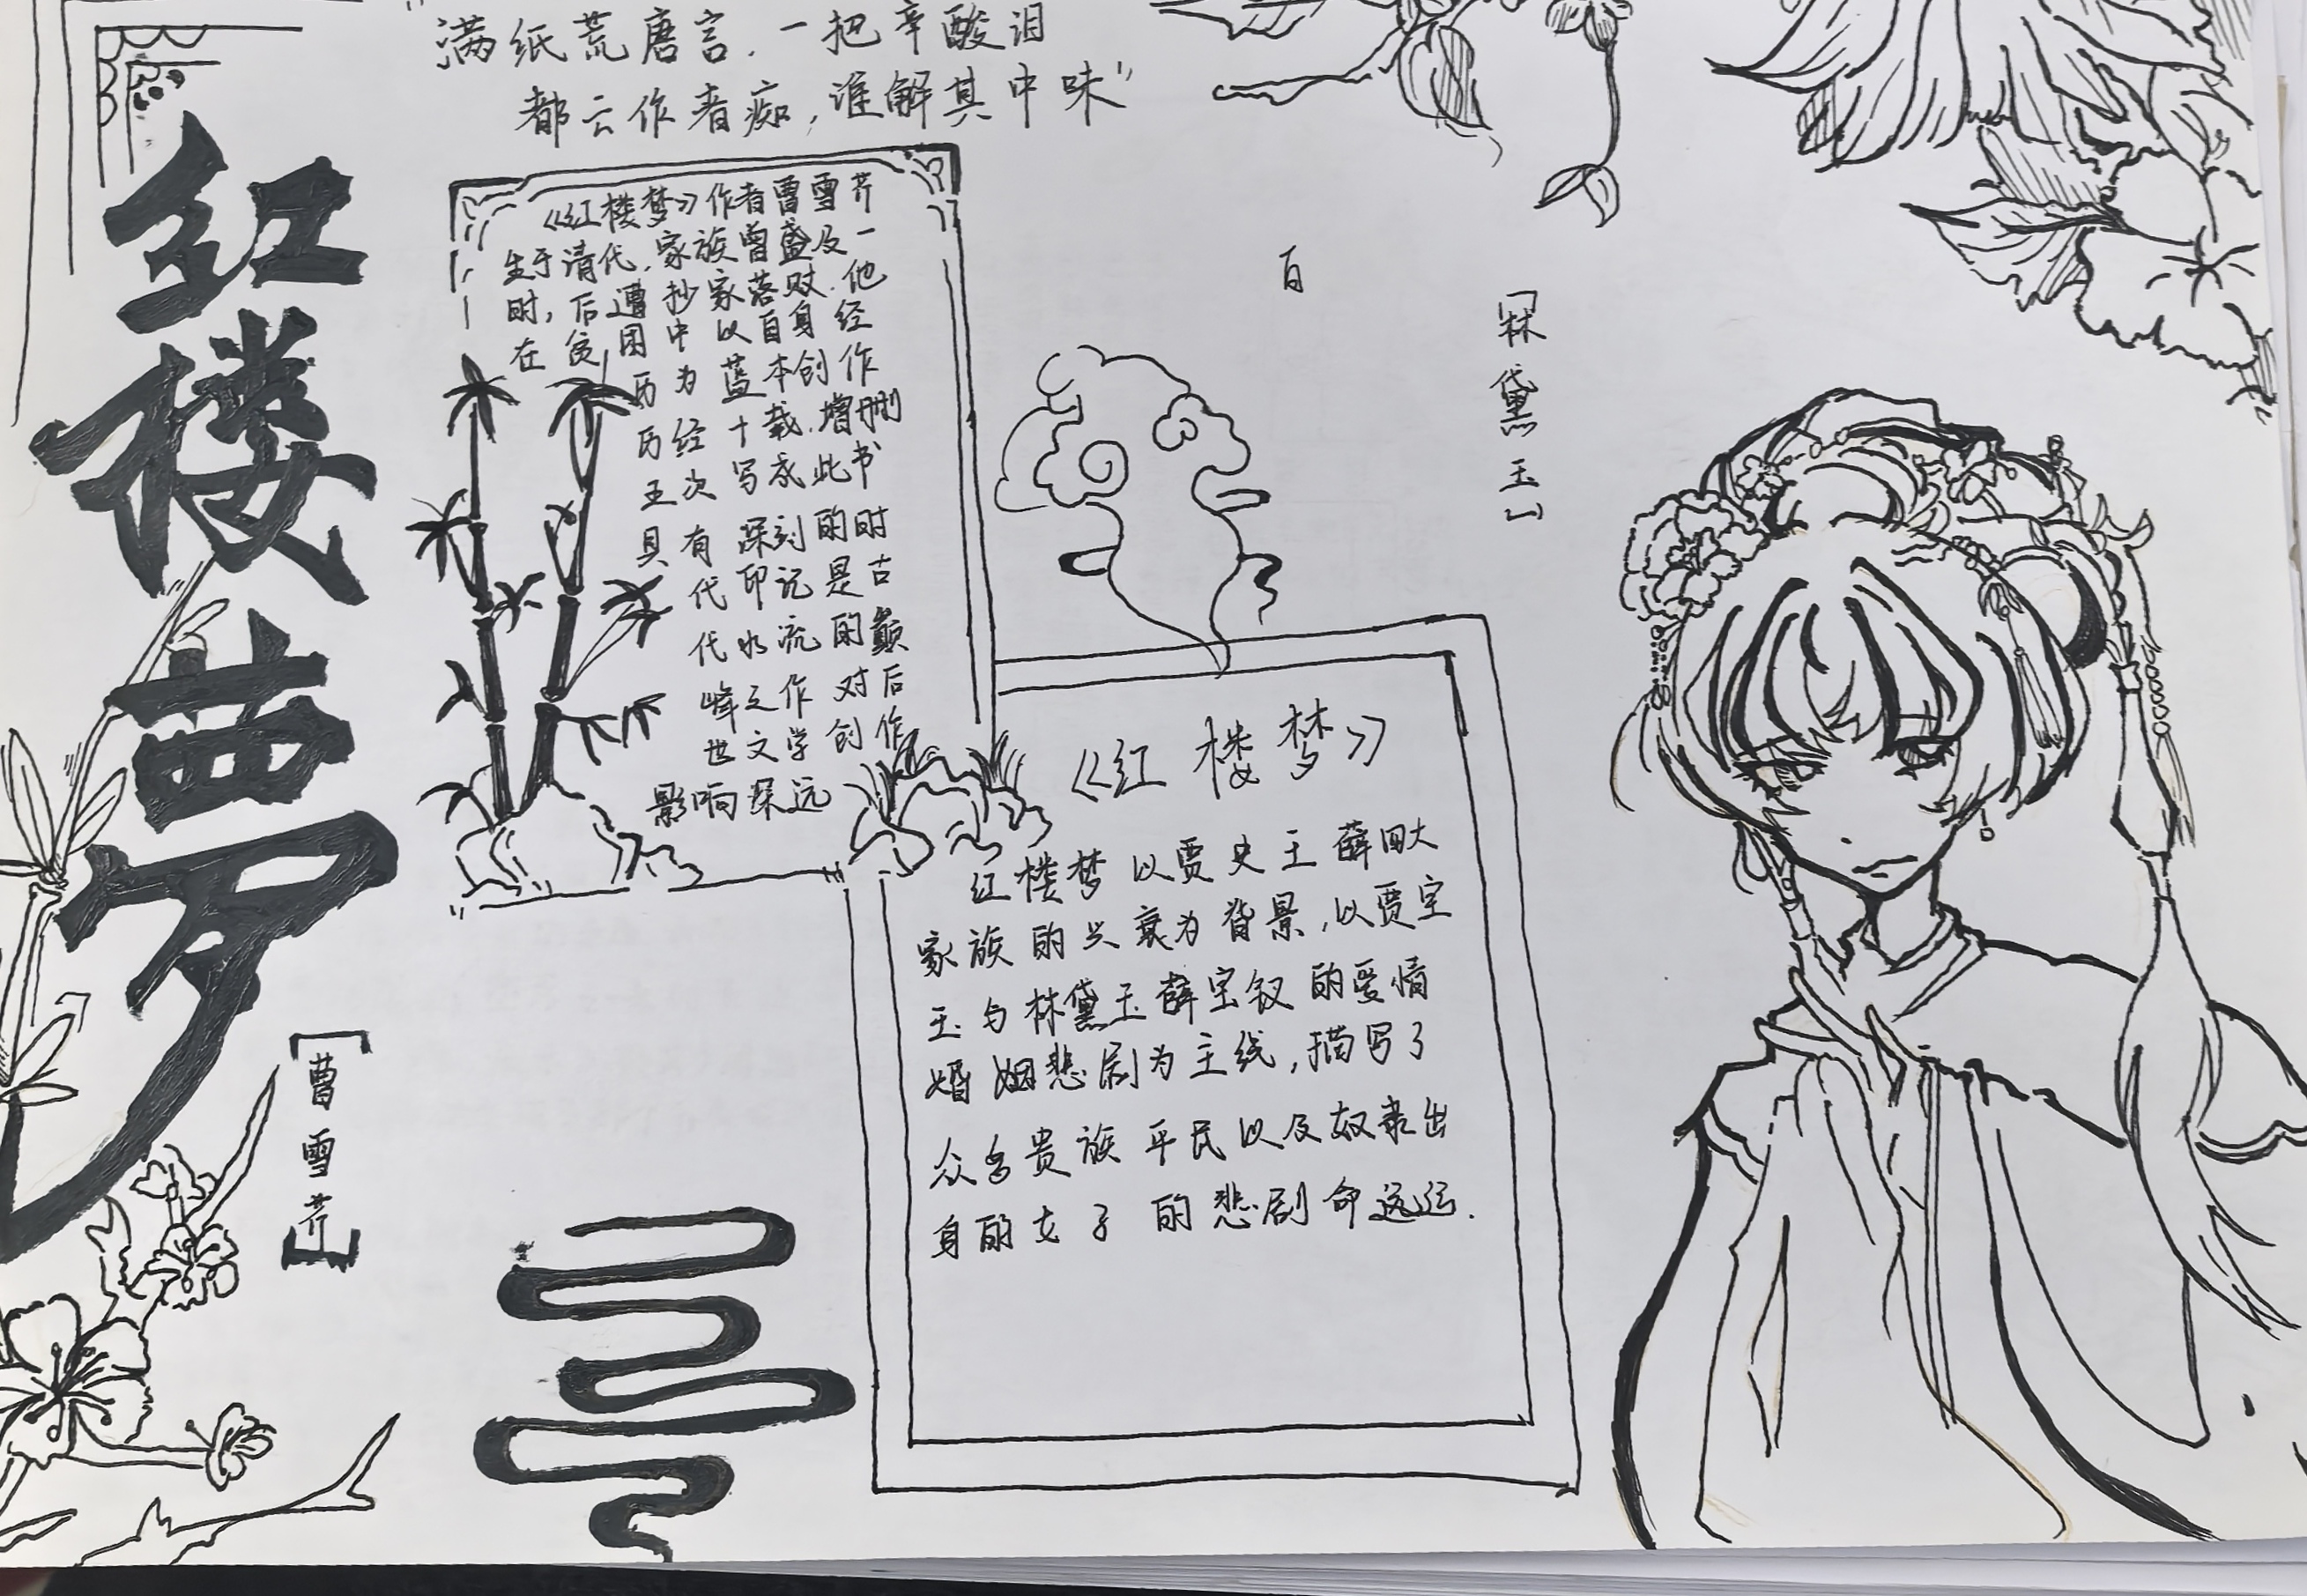 红楼梦
[曹雪芹]
"满纸荒唐言，一把辛酸泪
都云作者痴，谁解其中味"
《红楼梦》作者曹雪芹
生于清代，家族曾盛及一
时，后遭抄家落败，他
在贫困中以自身经
历为蓝本创作
历经十载，增删
五次写成此书
具有深刻的时
代印记是古
代水流的巅
峰之作对后
世文学创作
影响深远
百
「林黛玉」
《红楼梦》
红楼梦以贾史王薛四大
家族的兴衰为背景，以贾宝
玉与林黛玉薛宝钗的爱情
婚姻悲剧为主线，描写了
众多贵族平民以及奴隶出
身的女子的悲剧命运.